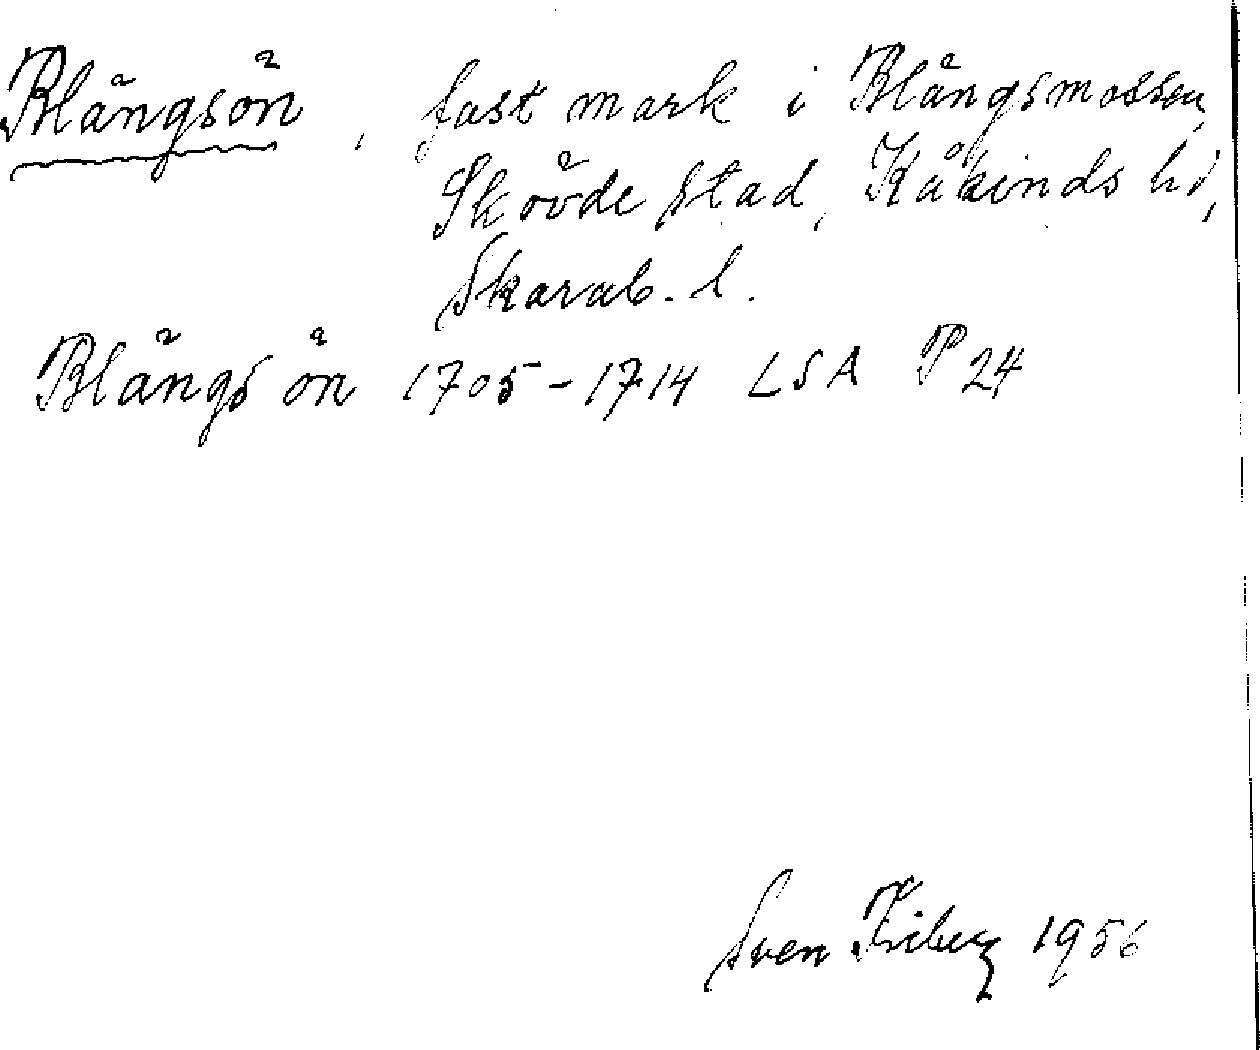 Blängsön, fast mark i Blängsmossen,
Skövde stad, Kåkinds hd,
Skarab. l.
Blängs ön 1705-1714 LSA P24
Sven Kiberg 1956